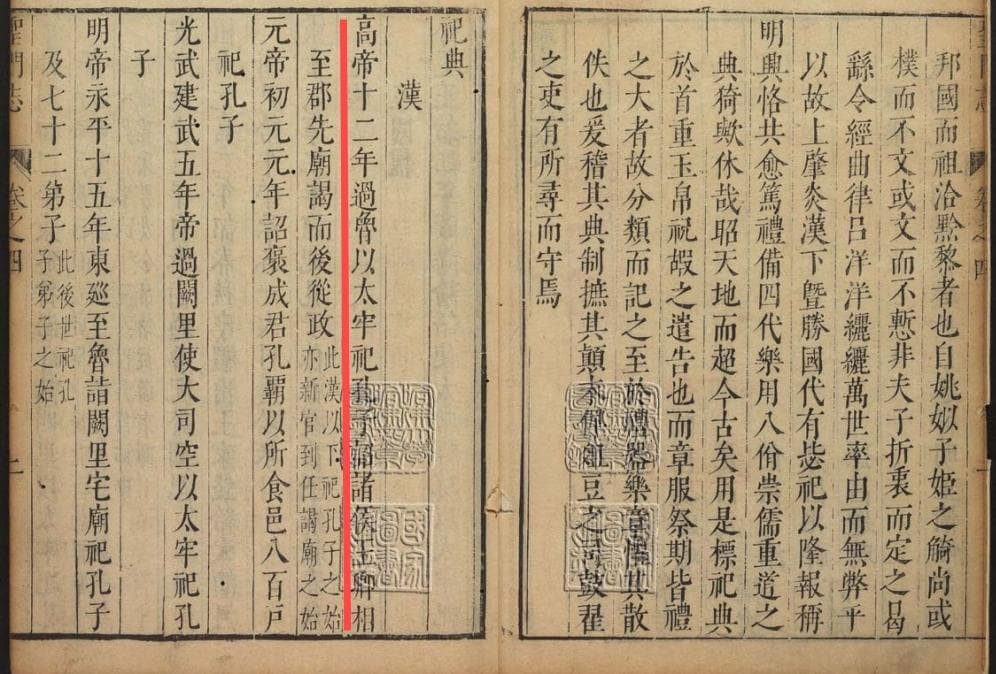 邦國而祖洽黔黎者也自姚姒子姬之觭尚或
樸而不文或文而不慙非夫子折衷而定之曷
繇令經曲律呂洋洋纚纚萬世率由而無弊乎
以故上肇炎漢下暨勝國代有毖祀以隆報稱
明興恪共愈篤禮備四代樂用八佾崇儒重道之
典猗歟休哉昭天地而超今古矣用是標祀典
於首重玉帛祝嘏之遣告也而章服祭期皆禮
之大者故分類而記之至於禮器樂章懼其散
佚也爰稽其典制摭其顛末俎豆之司鼓瞽
之吏有所尋而守焉
祀典
漢
高帝十二年過魯以太牢祀孔子詔諸侯王卿相
至郡先廟謁而後從政此漢以下祀孔子之始
亦新官到任謁廟之始
元帝初元元年詔褒成君孔霸以所食邑八百戶
祀孔子
光武建武五年帝過闕里使大司空以太牢祀孔
子
明帝永平十五年東巡至魯詣闕里宅廟祀孔子
及七十二弟子此後世祀孔
子弟子之始
聖門志
卷之四
一